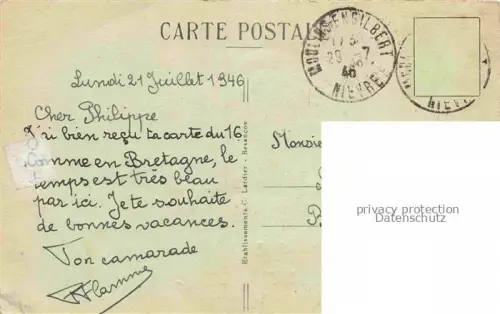 CARTE POSTALE
MOULINS-ENGILBERT
NIEVRE
Lundi 21 Juillet 1946
Cher Philippe
J'ai bien reçu ta carte du 16
Comme en Bretagne, le
temps est très beau
par ici. Je te souhaite
de bonnes vacances.
Ton camarade
Etablissements C. Lardier - Besançon
Monsie
privacy protection
Datenschutz